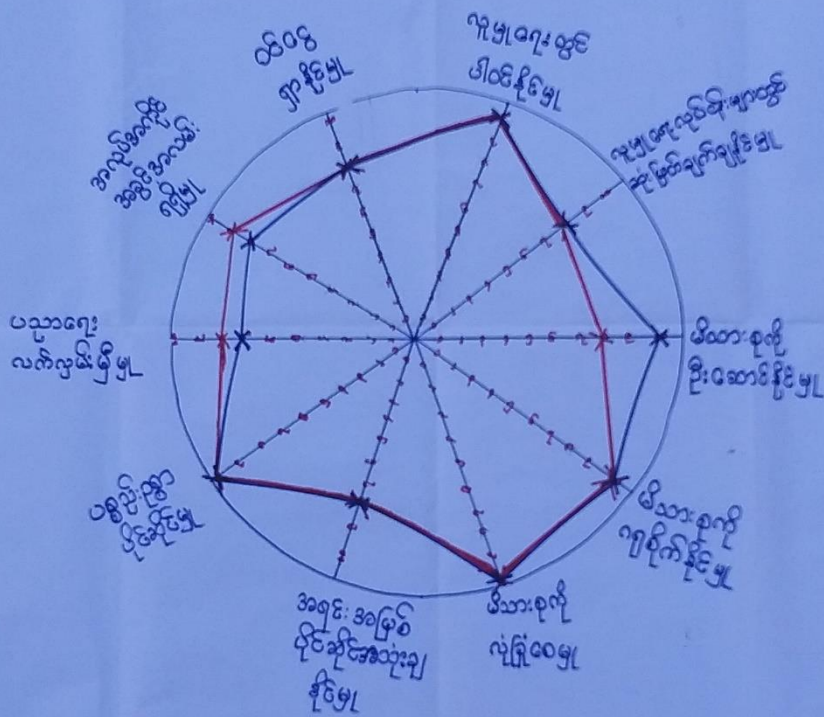 လူမှုရေးတွင်
ပါဝင်နိုင်မှု
လူမှုရေးလုပ်ငန်းများတွင်
ဆုံးဖြတ်ချက်ချနိုင်မှု
မိသားစုကို
ဦးဆောင်နိုင်မှု
မိသားစုကို
ဂရုစိုက်နိုင်မှု
မိသားစုကို
လုံခြုံစေမှု
အရင်းအမြစ်
ပိုင်ဆိုင်အသုံးချ
နိုင်မှု
ပစ္စည်းဥစ္စာ
ပိုင်ဆိုင်မှု
ပညာရေး
လက်လှမ်းမှီမှု
အလုပ်အကိုင်
အခွင့်အလမ်း
ရရှိမှု
ဝင်ငွေ
ရှာနိုင်မှု